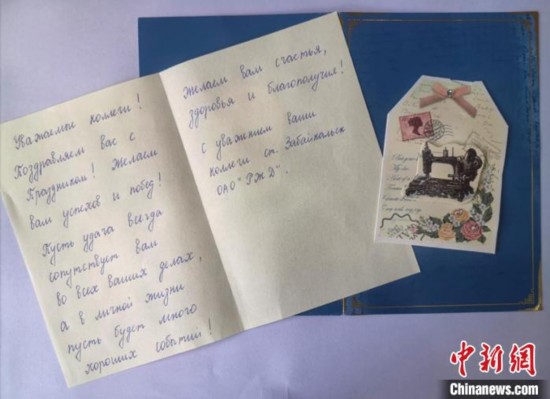 Уважаемые коллеги!
Поздравляем вас с
Праздником! Желаем
вам успехов и побед!
Пусть удача всегда
сопутствует вам
во всех ваших делах,
а в личной жизни
пусть будет много
хороших событий!
Желаем вам счастья,
здоровья и благополучия!
С уважением ваши
коллеги ст. Забайкальск
ОАО "РЖД".
中新網
Chinanews.com